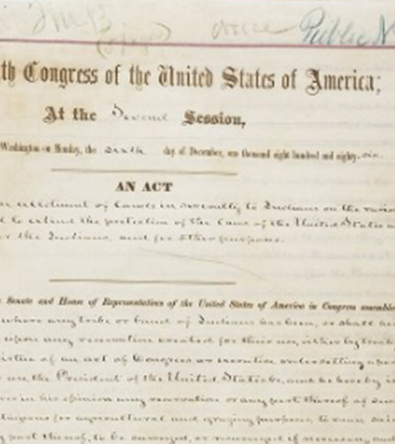 Public N
th Congress of the United States of America;
At the Second Session,
Washington on Monday, the sixth day of December, one thousand eight hundred and eighty-six.
AN ACT
allotment of lands in severalty to Indians on the vario
d to extend the protection of the laws of the United States
r the Indians, and for other purposes.
Senate and House of Representatives of the United States of America in Congress assemble
where any tribe or band of Indians has been, or shall
upon any reservation created for their use, either by treat
virtue of an act of Congress or executive order setting apa
use, the President of the United States be, and he hereby is
ver in his opinion any reservation or any part thereof of suc
tageous for agricultural and grazing purposes, to cause said
part thereof, to be surveyed, or resurveyed if necessary, and